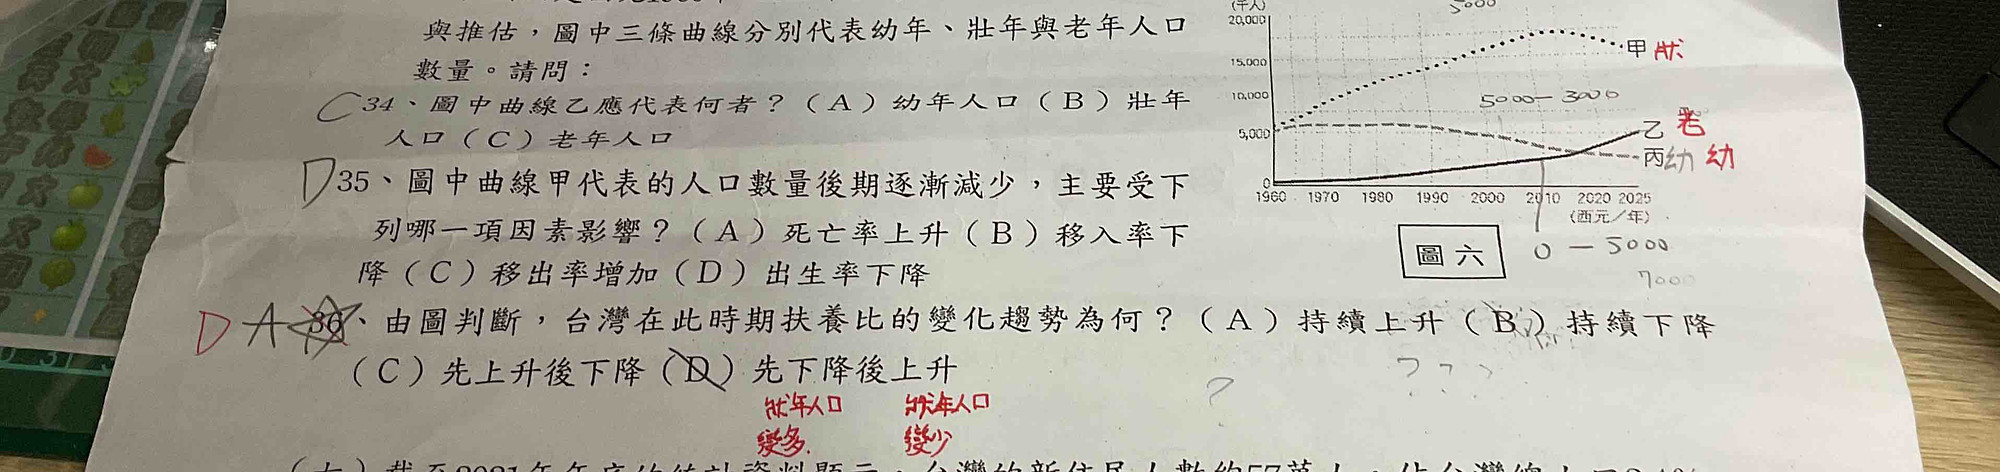 與推估，圖中三條曲線分別代表幼年、壯年與老年人口
數量。請問：
C 34、圖中曲線乙應代表何者？（A）幼年人口（B）壯年
人口（C）老年人口
D 35、圖中曲線甲代表的人口數量後期逐漸減少，主要受下
列哪一項因素影響？（A）死亡率上升（B）移入率下
降（C）移出率增加（D）出生率下降
D A 36、由圖判斷，台灣在此時期扶養比的變化趨勢為何？（A）持續上升（B）持續下降
（C）先上升後下降（D）先下降後上升
狀年人口 狀年人口
變多. 變少
(千人)
5000
20,000
15,000
10,000
5,000
0
甲 狀
5000-3000
乙 老
丙 幼 幼
1960 1970 1980 1990 2000 2010 2020 2025
(西元／年)
圖六
0-5000
7000
? ? ?
?